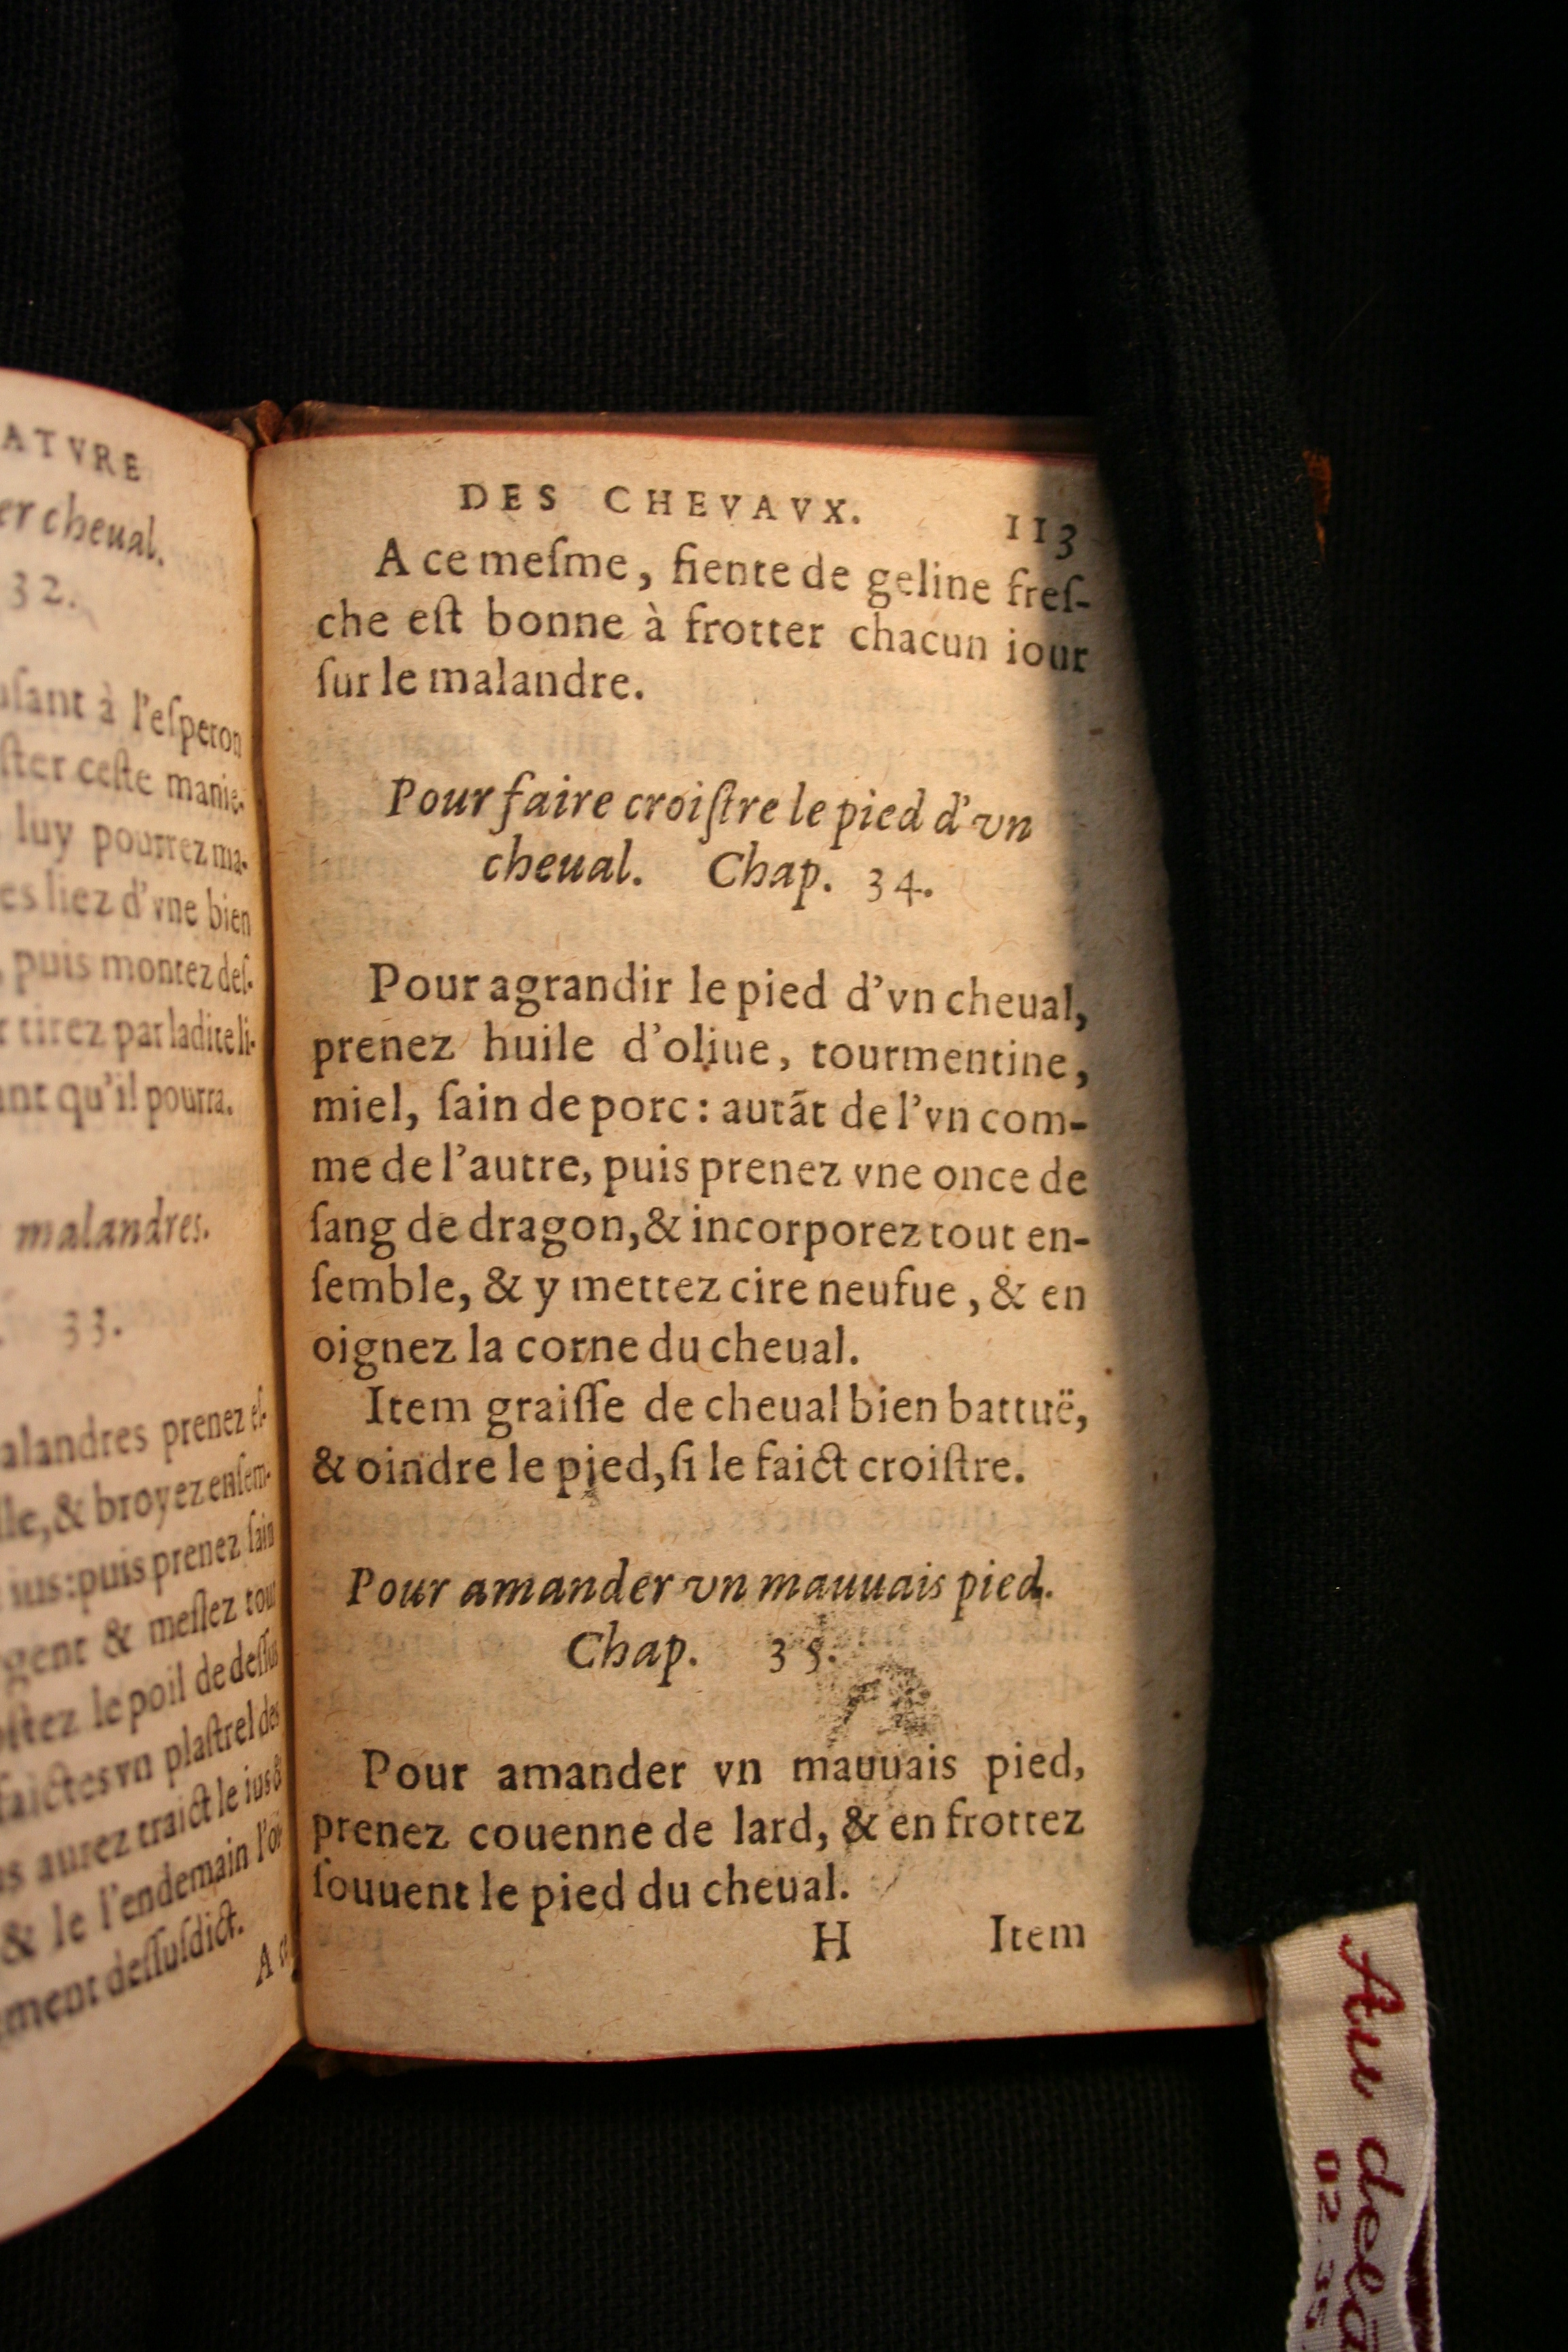 ATVRE
er cheual.
32.
à l'esperon
ceste manie-
luy pourrez ma-
es liez d'vne bien
, puis montez des-
tirez par ladite li-
ant qu'il pourra.
malandres.
33.
alandres prenez es-
lle, & broyez ensem-
ius: puis prenez sain
gent & meslez tout
ostez le poil de dessus
faictes vn plastrel des
s aurez traict le ius &
& le l'endemain l'oi-
ment dessusdict.
A ce
DES CHEVAVX. 113
A ce meſme, fiente de geline freſ-
che eſt bonne à frotter chacun iour
ſur le malandre.
Pour faire croiſtre le pied d'vn
cheual. Chap. 34.
Pour agrandir le pied d'vn cheual,
prenez huile d'oliue, tourmentine,
miel, ſain de porc: autãt de l'vn com-
me de l'autre, puis prenez vne once de
ſang de dragon, & incorporez tout en-
ſemble, & y mettez cire neufue, & en
oignez la corne du cheual.
Item graiſſe de cheual bien battuë,
& oindre le pied, ſi le faict croiſtre.
Pour amander vn mauuais pied.
Chap. 35.
Pour amander vn mauuais pied,
prenez couenne de lard, & en frottez
ſouuent le pied du cheual.
H Item
Au delà
02 35